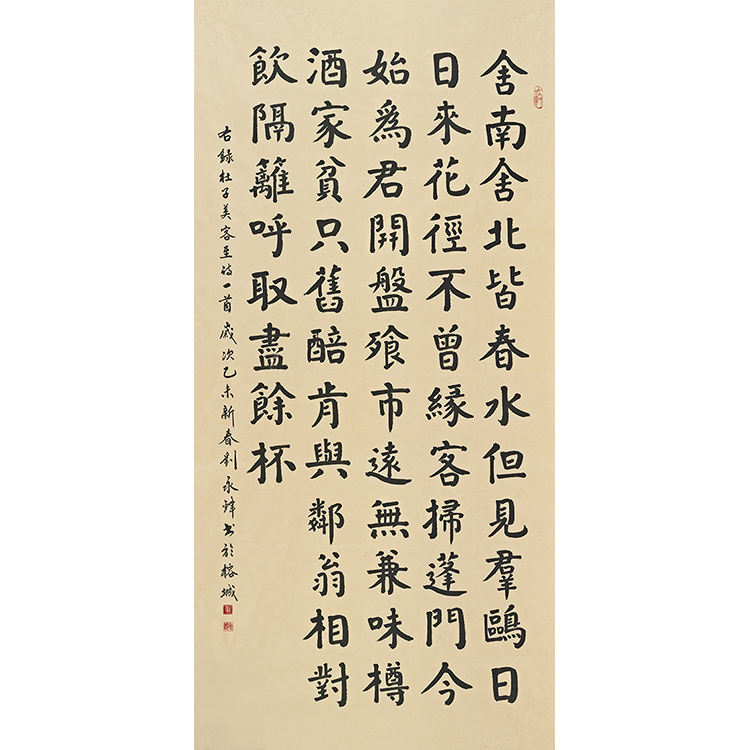 舍南舍北皆春水但見羣鷗日
日來花徑不曾緣客掃蓬門今
始爲君開盤飱市遠無兼味樽
酒家貧只舊醅肯與鄰翁相對
飲隔籬呼取盡餘杯
右錄杜子美客至詩一首歲次乙未新春劉永書於榕城